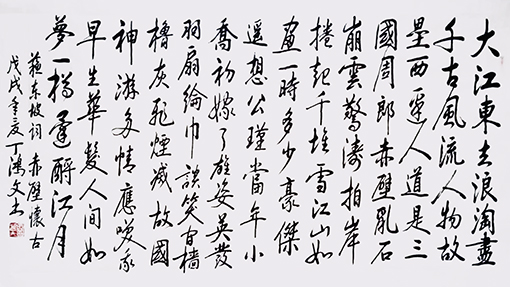 大江東去浪淘盡
千古風流人物故
壘西邊人道是三
國周郎赤壁亂石
崩雲驚濤拍岸
捲起千堆雪江山如
畫一時多少豪傑
遙想公瑾當年小
喬初嫁了雄姿英發
羽扇綸巾談笑間檣
櫓灰飛煙滅故國
神遊多情應笑我
早生華髮人間如
夢一樽還酹江月
蘇東坡詞赤壁懷古
戊戌夏丁鴻文书